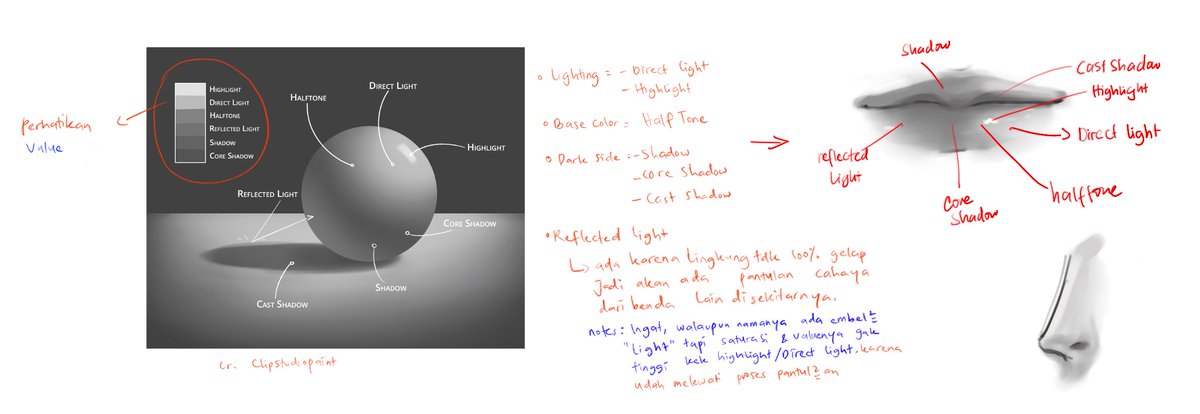 perhatikan
Value
HIGHLIGHT
DIRECT LIGHT
HALFTONE
REFLECTED LIGHT
SHADOW
CORE SHADOW
HALFTONE
DIRECT LIGHT
HIGHLIGHT
REFLECTED LIGHT
CORE SHADOW
SHADOW
CAST SHADOW
cr. Clipstudiopaint
• Lighting = - Direct light
- Highlight
• Base color = Half Tone
• Dark side = - Shadow
- Core Shadow
- Cast Shadow
• Reflected light
↳ ada karena lingkung tdk 100% gelap
Jadi akan ada pantulan cahaya
dari benda lain disekitarnya.
notes: Ingat, walaupun namanya ada embel²
"light" tapi saturasi & valuenya gak
tinggi kek highlight/Direct light. karena
udah melewati proses pantul²an
Shadow
Cast Shadow
Highlight
Direct light
reflected
light
Core
Shadow
halftone